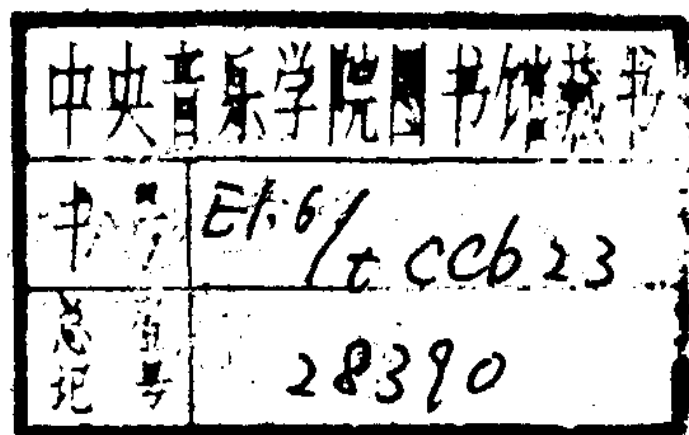 中央音乐学院图书馆藏书
书号 E1.6/t ccb23
总登记号 28390